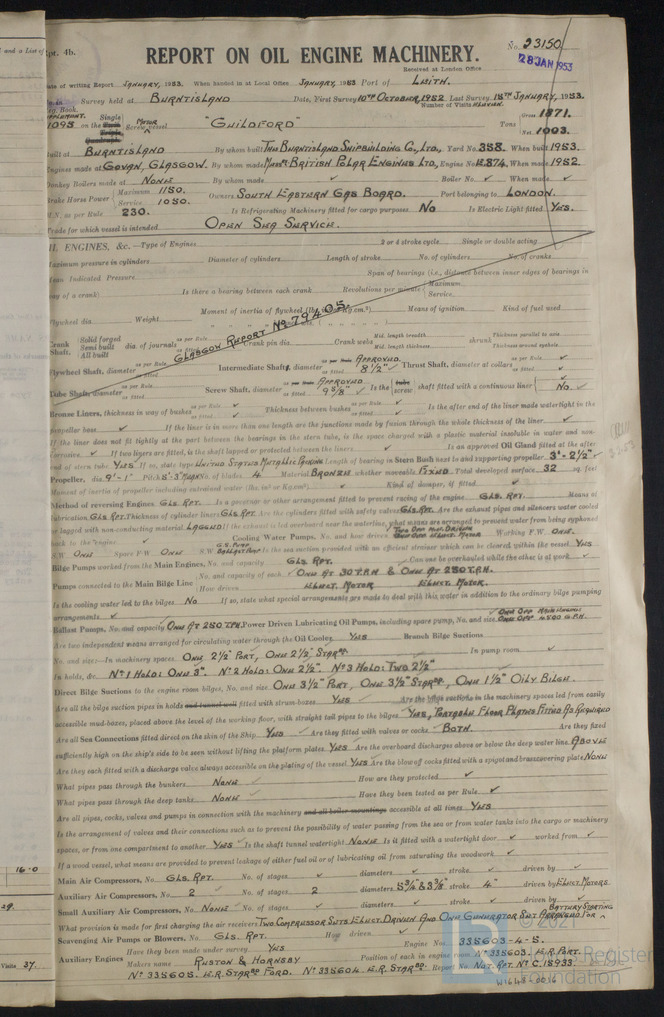 Rpt. 4b.
No. 23150
REPORT ON OIL ENGINE MACHINERY.
Received at London Office 28 JAN 1953
Date of writing Report JANUARY, 1953. When handed in at Local Office JANUARY, 1953 Port of LEITH.
Survey held at BURNTISLAND Date, First Survey 10TH OCTOBER, 1952 Last Survey 15TH JANUARY, 1953.
Number of Visits ELEVEN.
on the Single Screw Vessel MOTOR "GUILDFORD" Tons Gross 1871. Net 1003.
Built at BURNTISLAND By whom built THE BURNTISLAND SHIPBUILDING CO., LTD., Yard No. 358. When built 1953.
Engines made at GOVAN, GLASGOW. By whom made BRITISH POLAR ENGINES LTD., Engine No. E.874. When made 1952.
Donkey Boilers made at NONE By whom made ✓ Boiler No. ✓ When made ✓
Brake Horse Power Maximum 1150. Service 1050. Owners SOUTH EASTERN GAS BOARD. Port belonging to LONDON.
as per Rule 230. Is Refrigerating Machinery fitted for cargo purposes NO Is Electric Light fitted YES.
Trade for which vessel is intended OPEN SEA SERVICE.
ENGINES, &c.—Type of Engines 2 or 4 stroke cycle Single or double acting
Maximum pressure in cylinders Diameter of cylinders Length of stroke No. of cylinders No. of cranks
Mean Indicated Pressure Span of bearings (i.e., distance between inner edges of bearings in
way of a crank) Is there a bearing between each crank Revolutions per minute Maximum Service
Flywheel dia. Weight Moment of inertia of flywheel Means of ignition Kind of fuel used
GLASGOW REPORT NO 79405.
Crank Shaft, Solid forged Semi built All built dia. of journals as per Rule as fitted Crank pin dia. Crank webs Mid. length breadth Mid. length thickness shrunk Thickness parallel to axis Thickness around eyehole
Flywheel Shaft, diameter as per Rule as fitted Intermediate Shafts, diameter as per Rule APPROVED as fitted 8 1/2" Thrust Shaft, diameter at collars as per Rule as fitted
Tube Shaft, diameter as per Rule as fitted Screw Shaft, diameter as per Rule APPROVED as fitted 9 5/8" Is the tube screw shaft fitted with a continuous liner NO.
Bronze Liners, thickness in way of bushes as per Rule as fitted Thickness between bushes as per Rule as fitted Is the after end of the liner made watertight in the
propeller boss ✓ If the liner is in more than one length are the junctions made by fusion through the whole thickness of the liner ✓
If the liner does not fit tightly at the part between the bearings in the stern tube, is the space charged with a plastic material insoluble in water and non-
corrosive. ✓ If two liners are fitted, is the shaft lapped or protected between the liners ✓ Is an approved Oil Gland fitted at the after
end of stern tube YES If so, state type UNITED STATES METALLIC PACKING Length of bearing in Stern Bush next to and supporting propeller 3'-2 1/2"
Propeller, dia. 9'-1" Pitch 5'-3" MEAN No. of blades 4 Material BRONZE whether moveable FIXED Total developed surface 32 sq. feet
Moment of inertia of propeller including entrained water Kind of damper, if fitted ✓
Method of reversing Engines GLS. RPT. Is a governor or other arrangement fitted to prevent racing of the engine GLS. RPT. Means of
lubrication GLS RPT. Thickness of cylinder liners GLS RPT. Are the cylinders fitted with safety valves GLS. RPT. Are the exhaust pipes and silencers water cooled
or lagged with non conducting material LAGGED If the exhaust is led overboard near the waterline, what means are arranged to prevent water from being syphoned
back to the engine ✓ Cooling Water Pumps, No. and how driven Working F.W. ONE.
S.W ONE Spare F.W ONE S.W. G.S. PUMP BALLAST PUMP Is the sea suction provided with an efficient strainer which can be cleared within the vessel YES
Bilge Pumps worked from the Main Engines, No. and capacity GLS. RPT. Can one be overhauled while the other is at work ✓
Pumps connected to the Main Bilge Line No. and capacity of each ONE AT 30 T.P.H & ONE AT 250 T.P.H. How driven ELECT. MOTOR ELECT. MOTOR.
Is the cooling water led to the bilges NO If so, state what special arrangements are made to deal with this water in addition to the ordinary bilge pumping
arrangements ✓
Ballast Pumps, No. and capacity ONE AT 250 T.P.H. Power Driven Lubricating Oil Pumps, including spare pump, No. and size 4500 G.P.H.
Are two independent means arranged for circulating water through the Oil Cooler YES Branch Bilge Suctions
No. and size:—In machinery spaces ONE 2 1/2" PORT, ONE 2 1/2" STARBD. In pump room ✓
In holds, &c. NO 1 HOLD: ONE 3". NO 2 HOLD: ONE 2 1/2". NO 3 HOLD: TWO 2 1/2"
Direct Bilge Suctions to the engine room bilges, No. and size ONE 3 1/2" PORT, ONE 3 1/2" STARBD., ONE 1 1/2" OILY BILGE.
Are all the bilge suction pipes in holds and tunnel well fitted with strum-boxes YES Are the bilge suctions in the machinery spaces led from easily
accessible mud-boxes, placed above the level of the working floor, with straight tail pipes to the bilges YES, PORTABLE FLOOR PLATES FITTED AS REQUIRED
Are all Sea Connections fitted direct on the skin of the Ship YES Are they fitted with valves or cocks BOTH. Are they fixed
sufficiently high on the ship's side to be seen without lifting the platform plates YES Are the overboard discharges above or below the deep water line ABOVE
Are they each fitted with a discharge valve always accessible on the plating of the vessel YES Are the blow off cocks fitted with a spigot and brass covering plate NONE
What pipes pass through the bunkers NONE How are they protected ✓
What pipes pass through the deep tanks NONE Have they been tested as per Rule ✓
Are all pipes, cocks, valves and pumps in connection with the machinery and all boiler mountings accessible at all times YES
Is the arrangement of valves and their connections such as to prevent the possibility of water passing from the sea or from water tanks into the cargo or machinery
spaces, or from one compartment to another YES Is the shaft tunnel watertight NONE Is it fitted with a watertight door ✓ worked from ✓
If a wood vessel, what means are provided to prevent leakage of either fuel oil or of lubricating oil from saturating the woodwork ✓
Main Air Compressors, No. GLS. RPT. No. of stages ✓ diameters ✓ stroke ✓ driven by ✓
Auxiliary Air Compressors, No. 2 No. of stages 2 diameters 5 3/4" & 3 3/8" stroke 4" driven by ELECT. MOTORS
Small Auxiliary Air Compressors, No. NONE No. of stages ✓ diameters ✓ stroke ✓ driven by ✓
What provision is made for first charging the air receivers TWO COMPRESSOR SETS ELECT. DRIVEN AND ONE GENERATOR SET ARRANGED FOR BATTERY STARTING
Scavenging Air Pumps or Blowers, No. GLS. RPT. How driven ✓
Auxiliary Engines Have they been made during survey YES Engine Nos. 335603-4-5.
Makers name RUSTON & HORNSBY Position of each in engine room NO 335603. E.R. PORT.
NO 335605. E.R. STARBD FORD. NO 335604 E.R. STARBD. Report No. NOT. RPT. NO C.15933.
16-0
29.
Visits 37.
© 2021
Lloyd's Register
Foundation
W1645-0016